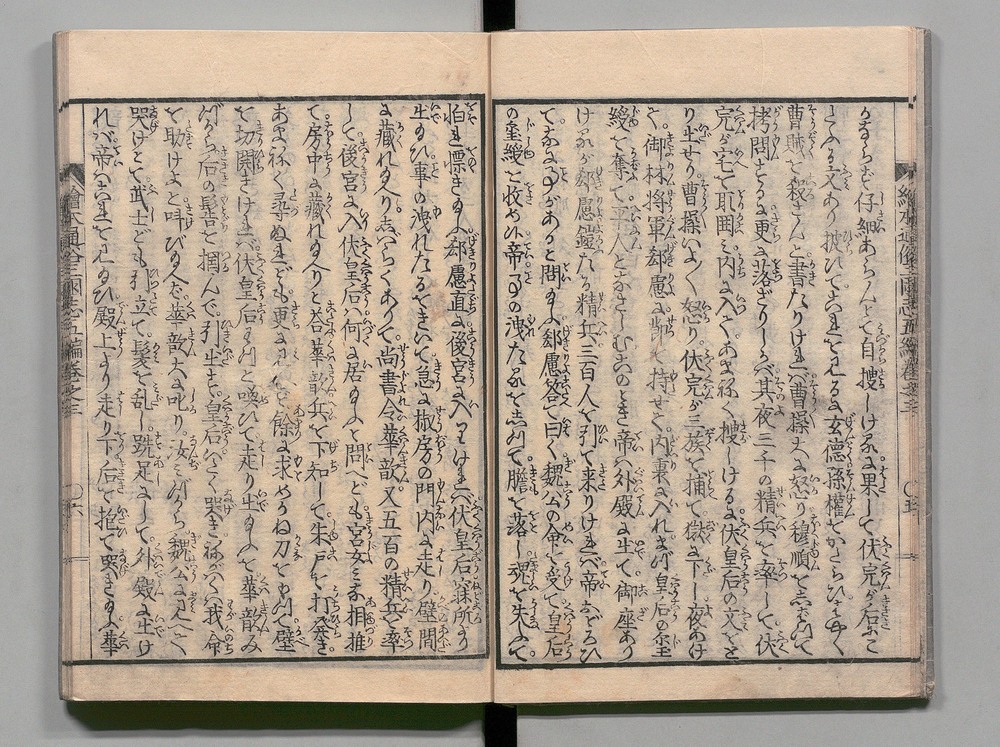 かならず仔細あらんとて自捜しけるに果して伏完が后に
さゝぐる文あり披ひてこれをみるに玄德孫權をかたらひはやく
曹賊を殺さんと書たりければ曹操大に怒り穆順をとらへて
拷問するに更に落ざりしかば其夜三千の精兵を率して伏
完が宅を取囲み内に入てあまねく捜しけるに伏皇后の文をと
り出せり曹操いよ〱怒り伏完が三族を捕て獄に下し夜あけ
て御林將軍郄慮に節を持せて内裏に入れまづ皇后の璽
綬を奪て平人となさしむこのとき帝ハ外殿に出て御座あり
けるが郄慮鎧たる精兵三百人を引て来りければ帝おどろひ
てなに事があると問たまふ郄慮答て曰く魏公の命を受て皇后
の璽綬を收め帝事の洩たるを志りて膽を落し魂を失ふて
怕れ慄きたまふ郄慮直に後宮に入りければ伏皇后寐所より
出たまひ事の洩れたるをきいて急に椒房の門内に走り壁間
に藏れたまへりしバらくありて尚書令華歆又五百の精兵を率
して後宮に入伏皇后ハ何に居たまふと問へども宮女ミな相推
て房中に藏れたまへりと答華歆兵を下知して朱戸を打破り
あまねく尋ぬれども更にみえず餘に求めかね刀をもつて壁
を切開きければ伏皇后あつと喚ひて走り出たまふを華歆み
づから后の髻を掴んで引出す皇后いたく哭きねがハくハ我命
を助けよと叫びたまへバ華歆大に叱り汝ミづから魏公にみえて
哭けとて武士ども引立て髪を乱し跣足にして外殿に出け
れバ帝ハこれをみたまひ殿上より走り下后を抱て哭きたまふ華
繪本通俗三國志五編巻之三
〇五
繪本通俗三國志五編巻之三
〇六